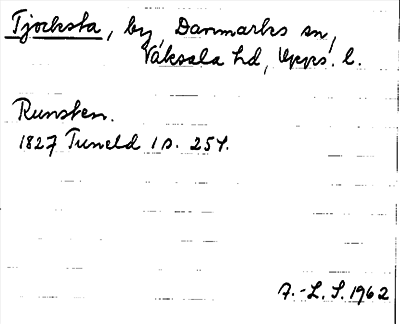 Tjocksta, by, Danmarks sn,
Vaksala hd, Upps. l.
Runsten.
1827 Tuneld 1 s. 254.
A.-L. S. 1962